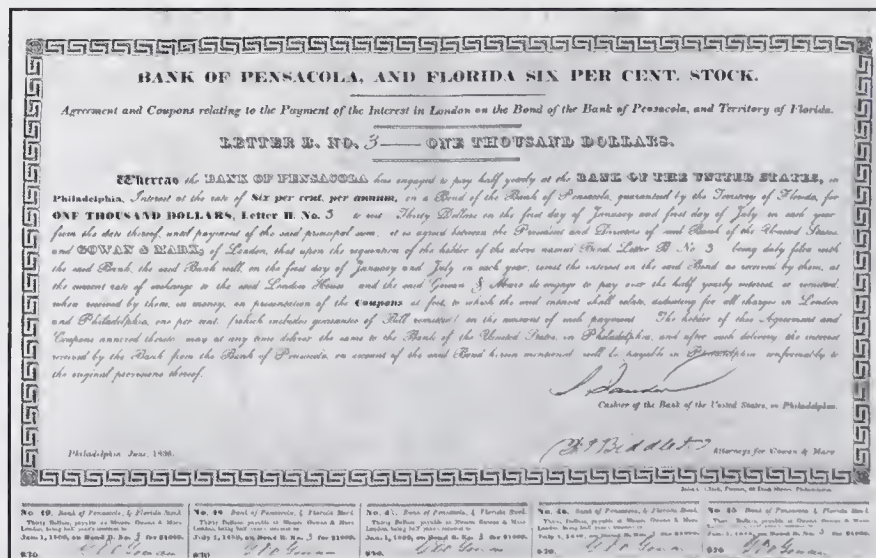 BANK OF PENSACOLA, AND FLORIDA SIX PER CENT. STOCK.
Agreement and Coupons relating to the Payment of the Interest in London on the Bond of the Bank of Pensacola, and Territory of Florida.
LETTER B. NO. 3 — ONE THOUSAND DOLLARS.
Whereas the BANK OF PENSACOLA has engaged to pay half yearly at the BANK OF THE UNITED STATES, in
Philadelphia, Interest at the rate of Six per cent. per annum, on a Bond of the Bank of Pensacola, guaranteed by the Territory of Florida, for
ONE THOUSAND DOLLARS, Letter B. No. 3 to wit Thirty Dollars on the first day of January and first day of July in each year
from the date thereof, until payment of the said principal sum, it is agreed between the President and Directors of said Bank of the United States,
and GOWAN & MARX, of London, that upon the requisition of the holder of the above named Bond Letter B No 3 being duly filed with
the said Bank, the said Bank will, on the first day of January and July in each year, remit the interest on the said Bond as received by them, at
the current rate of exchange to the said London House and the said Gowan & Marx do engage to pay over the half yearly interest so remitted
when received by them, in money, on presentation of the Coupons at foot, to which the said interest shall relate, deducting for all charges in London
and Philadelphia, one per cent. (which includes guarantee of Bill remitted) on the amount of each payment. The holder of this Agreement and
Coupons annexed thereto may at any time deliver the same to the Bank of the United States, in Philadelphia, and after such delivery the interest
received by the Bank from the Bank of Pensacola on account of the said Bond herein mentioned will be payable in Philadelphia conformably to
the original provisions thereof.
Cashier of the Bank of the United States, in Philadelphia.
Philadelphia June, 1836.
Biddle Attorneys for Gowan & Marx
No. 49. Bank of Pensacola, & Florida Bond.
Thirty Dollars, payable at Messrs. Gowan & Marx
London, being half year's interest to
Jan. 1, 1860, on Bond B. No. 3 for $1000.
$30.
Bank of Pensacola, & Florida Bond.
Thirty Dollars, payable at Messrs. Gowan & Marx
London, being half year's interest to
on Bond B. No. 3 for $1000.
$30.
Bank of Pensacola, & Florida Bond.
Thirty Dollars, payable at Messrs. Gowan & Marx
London, being half year's interest to
on Bond B. No. 3 for $1000.
$30.
Bank of Pensacola, & Florida Bond.
Thirty Dollars, payable at Messrs. Gowan & Marx
London, being half year's interest to
on Bond B. No. 3 for $1000.
$30.
No 45 Bank of Pensacola, & Florida Bond.
Thirty Dollars, payable at Messrs. Gowan & Marx
London, being half year's interest to
on Bond B. No. 3 for $1000.
$30.